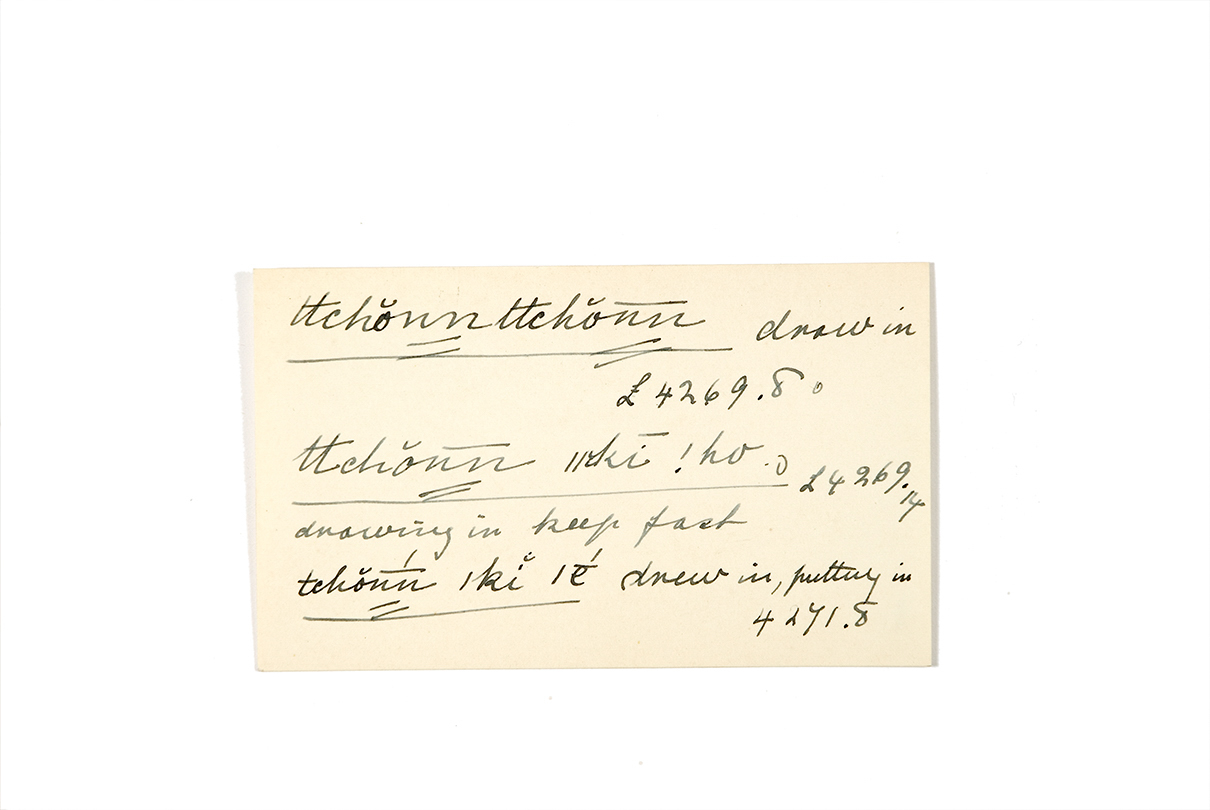 ttchŏnnttchŏn̅n̅ draw in
Ł 4269.8 o
ttchŏn̅n̅ ǁkī ! ho Ł 4269.14
drawing in keep fast
tchŏn̅ń ǀkĭ ǀé̅ drew in, putting in
4271.8